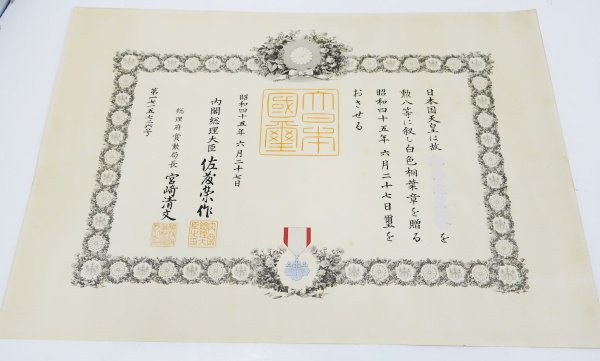 日本国天皇は故
を
勲八等に叙し白色桐葉章を贈る
昭和四十五年六月二十七日璽を
おさせる
大日本
國璽
昭和四十五年六月二十七日
内閣総理大臣佐藤榮作
総理府賞勲局長宮﨑清文